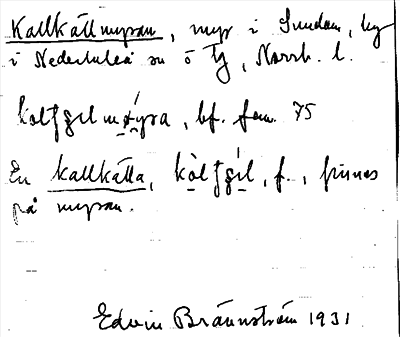 Kallkällmyran, myr i Sundom, by
i Nederluleå sn ö Ty, Norrb. l.
myra, bf. fem. 75
En kallkälla, f., finnes
på myran.
Edvin Brännström 1931